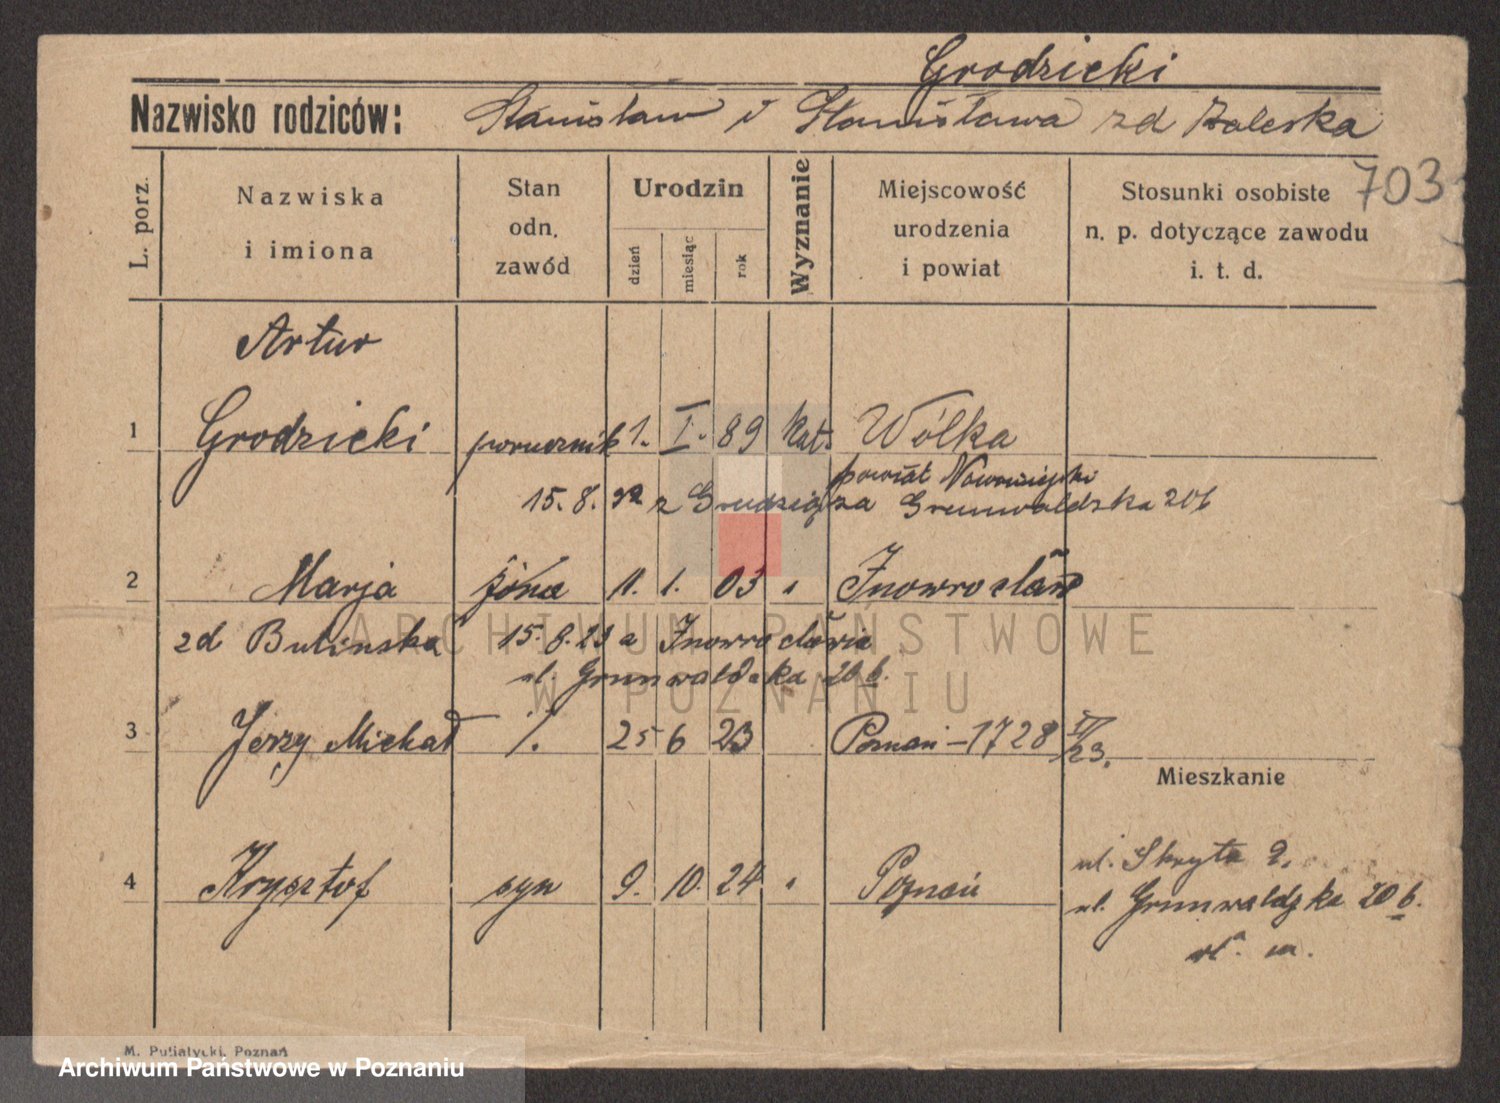 Grodzicki
Nazwisko rodziców: Stanisław i Stanisława zd Zaleska
703
L. porz.
Nazwiska i imiona
Stan odn. zawód
Urodzin
dzień
miesiąc
rok
Wyznanie
Miejscowość urodzenia i powiat
Stosunki osobiste n. p. dotyczące zawodu i. t. d.
Artur
1 Grodzicki porucznik 1. I. 89 kat. Wólka
powiat
15. 8. z Grudziądza Grunwaldzka 20b
2 Marja żona 11. 1. 03 " Inowrocław
zd Bulinska 15. 8. 23 a Inowrocławia
ul. Grunwaldzka 20 b.
3 Jerzy Michał /. 25 6 23 Poznań - 1728 IV/23.
Mieszkanie
4 Krysztof syn 9. 10. 24 " Poznań
ul. Skryta 2.
ul. Grunwaldzka 20 b.
wł. m.
M. Putiatycki, Poznań
ARCHIWUM PAŃSTWOWE
W POZNANIU
Archiwum Państwowe w Poznaniu